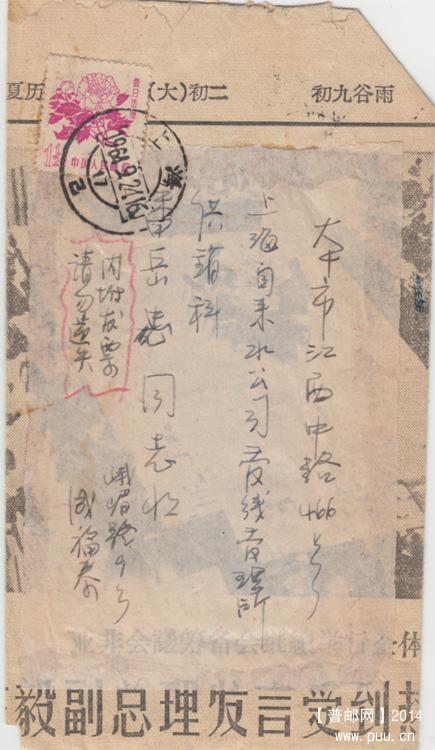 夏历
(大)二初
雨谷九初
中国人民邮政
上海
1964.9.24.16
本市江西中路466号
上海自来水公司管线管理所
供销科
岳忠同志收
内附发票
请勿遗失
峨嵋路9号
成福泰
毅副总理发言受到
【普邮网】2014
www.puu.cn